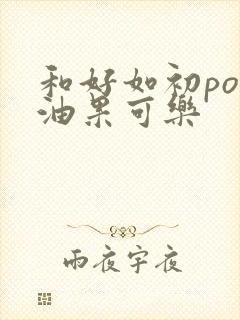 和好如初po
油果可樂
雨夜宇夜